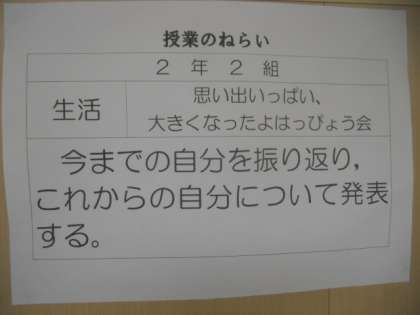 授業のねらい
２年２組
生活
思い出いっぱい、
大きくなったよはっぴょう会
今までの自分を振り返り，
これからの自分について発表
する。